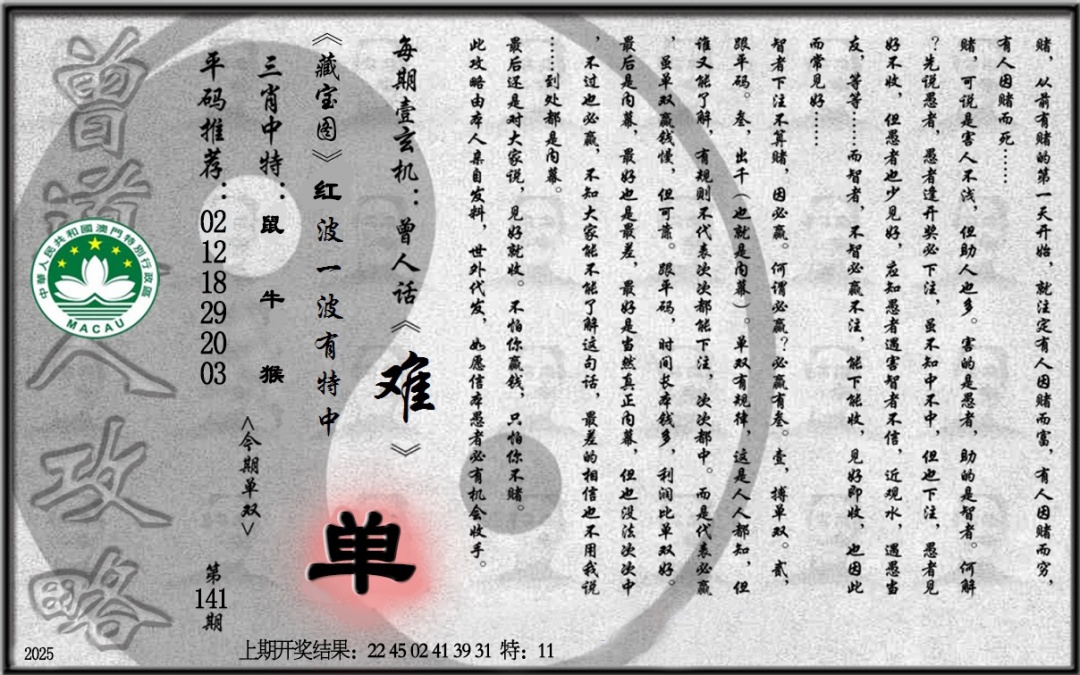 赌，从前有赌的第一天开始，就注定有人因赌而富，有人因赌而穷，
有人因赌而死……
赌，可说是害人不浅，但助人也多。害的是愚者，助的是智者。何解
？先说愚者，愚者逢开奖必下注，虽不知中不中，但也下注，愚者见
好不收，但愚者也少见好，应知愚者遇害智者不信，近观水，遇愚当
友，等等……而智者，不智必赢不注，能下能收，见好即收，也因此
而常见好……
智者下注不算赌，因必赢。何谓必赢？必赢有叁。壹，搏单双。贰，
跟平码。叁，出千（也就是内幕）。单双有规律，这是人人都知，但
谁又能了解，有规则不代表次次都能下注，次次都中。而是代表必赢
，虽单双赢钱慢，但可靠。跟平码，时间长本钱多，利润比单双好。
最后是内幕，最好也是最差，最好是当然真正内幕，但也没法次次中
，不过也必赢，不知大家能不能了解这句话，最差的相信也不用我说
……到处都是内幕。
最后还是对大家说，见好就收。不怕你赢钱，只怕你不赌。
此攻略由本人亲自发料，世外代发，如愿信本愚者必有机会收手。
每期壹玄机：曾人话《难》
《藏宝图》红波一波有特中
三肖中特：鼠 牛 猴
<今期单双>
单
平码推荐：02 12 18 29 20 03
第141期
曾道人攻略
中華人民共和國澳門特別行政區
MACAU
2025
上期开奖结果：22 45 02 41 39 31 特：11